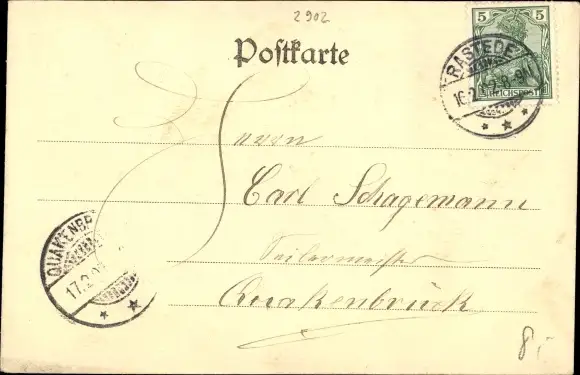 2902
5 5
REICHSPOST
RASTEDE
16.2. 8-9N.
Postkarte
Herrn
Carl Schagemann
Seilermeister
Quakenbrück
QUAKENBR
17.2.
8,-